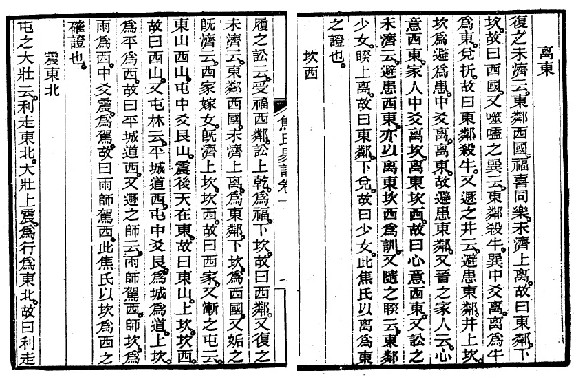 离東
復之未濟云。東鄰西國。福喜同樂。未濟上离。故曰東鄰。下
坎。故曰西國。又噬嗑之巽云。東鄰殺牛。巽中爻离。离為牛
為東。兌折。故曰東鄰殺牛。又遯之井云。避患東鄰。井上坎。
坎為避為患。中爻离。离東。故避患東鄰。又晉之家人云。心
意西東。家人中爻离坎。离東坎西。故曰心意西東。又訟之
未濟云。避患西東。亦以离東坎西為訓。又隨之睽云。東鄰
少女。睽上离。故曰東鄰。下兌。故曰少女。此焦氏以离為東
之證也。
坎西
焦氏易詁卷一
履之訟云。受福西鄰。訟上乾為福。下坎。故曰西鄰。又復之
未濟云。東鄰西國。未濟上离。為東鄰。下坎。為西國。又姤之
既濟云。西家嫁女。既濟上坎。坎西。故曰西家。又漸之屯云。
東山西山。屯中爻艮山。震後天在東。故曰東山。上坎。坎西。
故曰西山。又屯林云。平城道西。屯中爻艮。為城為道。上坎。
為平為西。故曰平城道西。又遯之師云。雨師駕西。師坎為
雨為西。中爻震。為駕。故曰雨師駕西。此焦氏以坎為西之
確證也。
震東北
屯之大壯云。利走東北。大壯上震。為行為東北。故曰利走